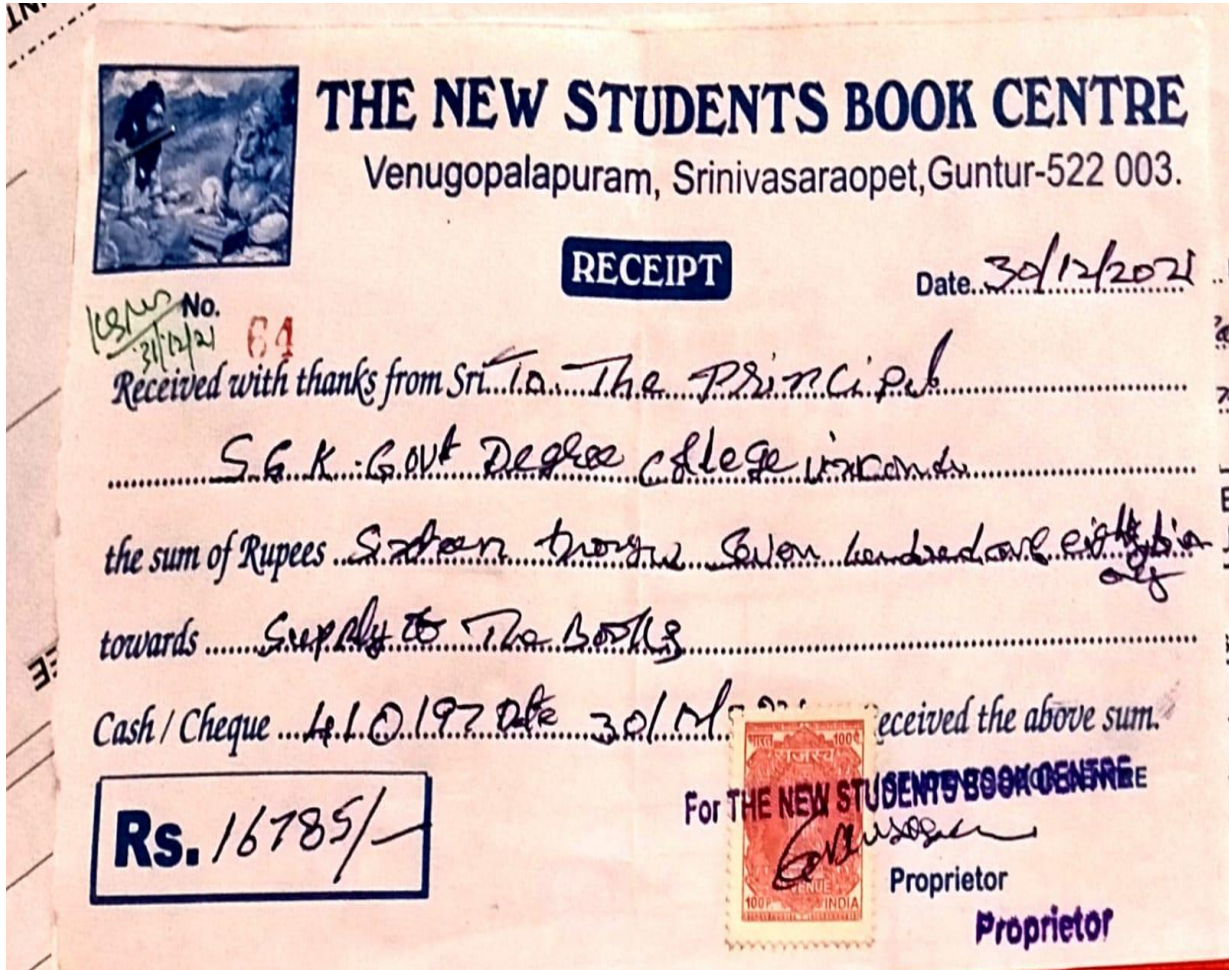 THE NEW STUDENTS BOOK CENTRE
Venugopalapuram, Srinivasaraopet,Guntur-522 003.
RECEIPT
Date 30/12/2021
No. 64
31/12/21
Received with thanks from Sri To The Principal
S.G.K. Govt Degree College
the sum of Rupees Sixteen Seven hundred and eighty only
towards Supply to The Books
Cash / Cheque 410197 Date 30/12/ eceived the above sum.
Rs. 16785/-
For THE NEW STUDENTS BOOK CENTRE
Proprietor
Proprietor
भारत 100
राजस्व
100P INDIA